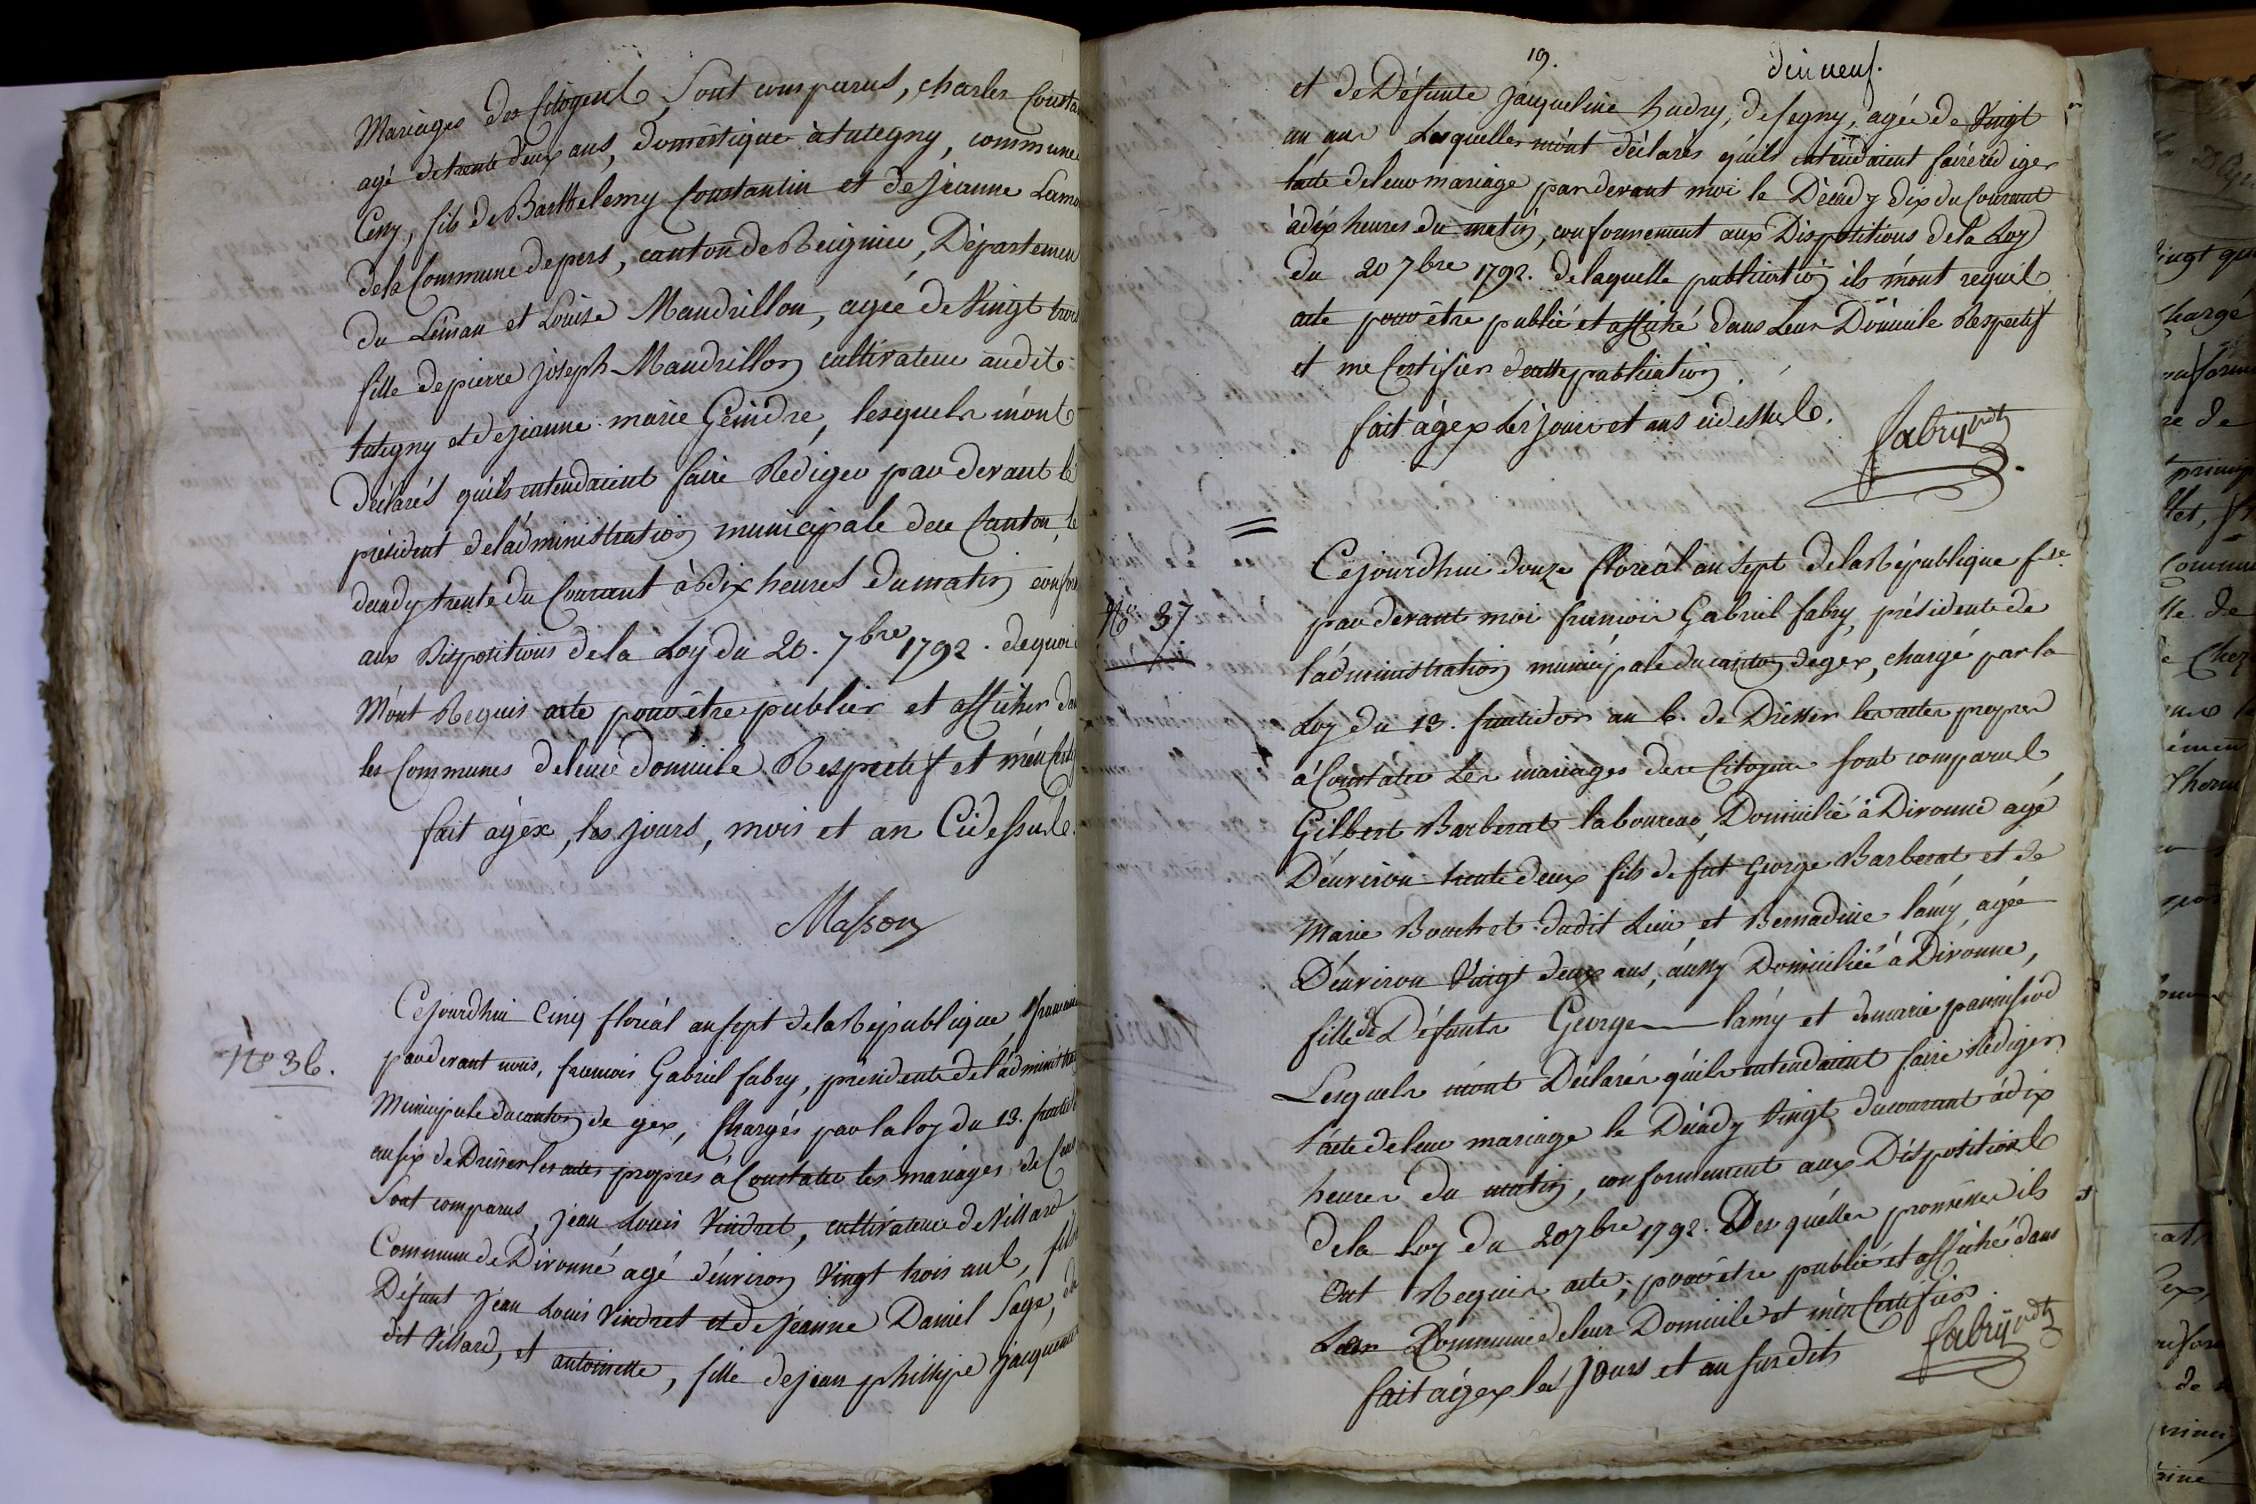 Mariages des Citoyens, Sont comparus, charles Consta
agé de trente deux ans, domestique à tutegny, commune
Cessy, fils de Barthelemy Constantin et de Jeanne Lamo
de la Commune de pers, canton de Reignier, Département
du Léman et Louise Mandrillon, agée de Vingt trois
fille de pierre joseph Mandrillon cultivateur audit
tutegny et de jeanne marie Geindre, lesquels m'ont
déclarés qu'ils entendaient faire Rediger par devant le
président de l'administration municipale de ce Canton, le
decady trente du Courant à dix heures du matin confor
aux Dispositions de la Loy du 20. 7bre 1792. dequoi
M'ont Requis acte pour être publier et afficher da
les Communes de leur domicile Respectif et m'en
fait à gex, les jours, mois et an Cidessus.
Masson
No 36.
Cejourdhui Cinq floréal an sept de la République francai
par devant nous, francois Gabriel fabry, présidente de l'administra
Municipale du canton de gex, Chargés par la loy du 13. fructid
an six de Dresser les actes propres à Constater les mariages de
Sont comparus, jean Louis Vindret, cultivateur de Villard
Commune de Divonne agé d'environ Vingt trois ans, fils
Défunt Jean Louis Vindret et de Jeanne Daniel Sage, du
dit Villard, et antoinette, fille de jean phillipe jacquemet
19. dixneuf.
et de Défunte jacqueline hudry, de segny, agée de Vingt
un ans Lesquelles m'ont déclarés qu'ils entendaient faire rédiger
l'acte de leur mariage par devant moi le Décady dix du Courant
à dix heures du matin, conformement aux Dispositions de la Loy
du 20 7bre 1792. de laquelle publication ils m'ont requis
acte pour être publié et affiché dans Leur Domicile Respectif
et me Certifier de cette publication.
fait à gex les jours et ans cidessus.
fabry pdt
No 37
Cejourdhui douze floréal an sept de la République fse.
par devant moi francois Gabriel fabry, présidente de
l'administration municipale du canton de gex, chargé par la
Loy du 13. fructidor an 6. de Dresser les actes propres
à Constater Les mariages des Citoyens sont comparus,
Gilbert Barberat laboureur, Domicilié à Divonne agé
D'environ trente deux fils de fut George Barberat et de
Marie Bouchet dudit Lieu et Bernadine lamy, agée
D'environ Vingt deux ans, aussy Domiciliée à Divonne,
fille de Défunts George lamy et de marie pannissod
Lesquels m'ont Déclarés qu'ils entendaient faire Rediger
l'acte de leur mariage le Décady Vingt du courant à dix
heures du matin, conformement aux Dispositions
de la Loy du 20 7bre 1792. Des quelles promesses ils
ont Requis acte, pour être publié et affiché dans
Leur Commune de leur Domicile et m'en Certifier.
fait à gex les jours et an susdits
fabry pdt